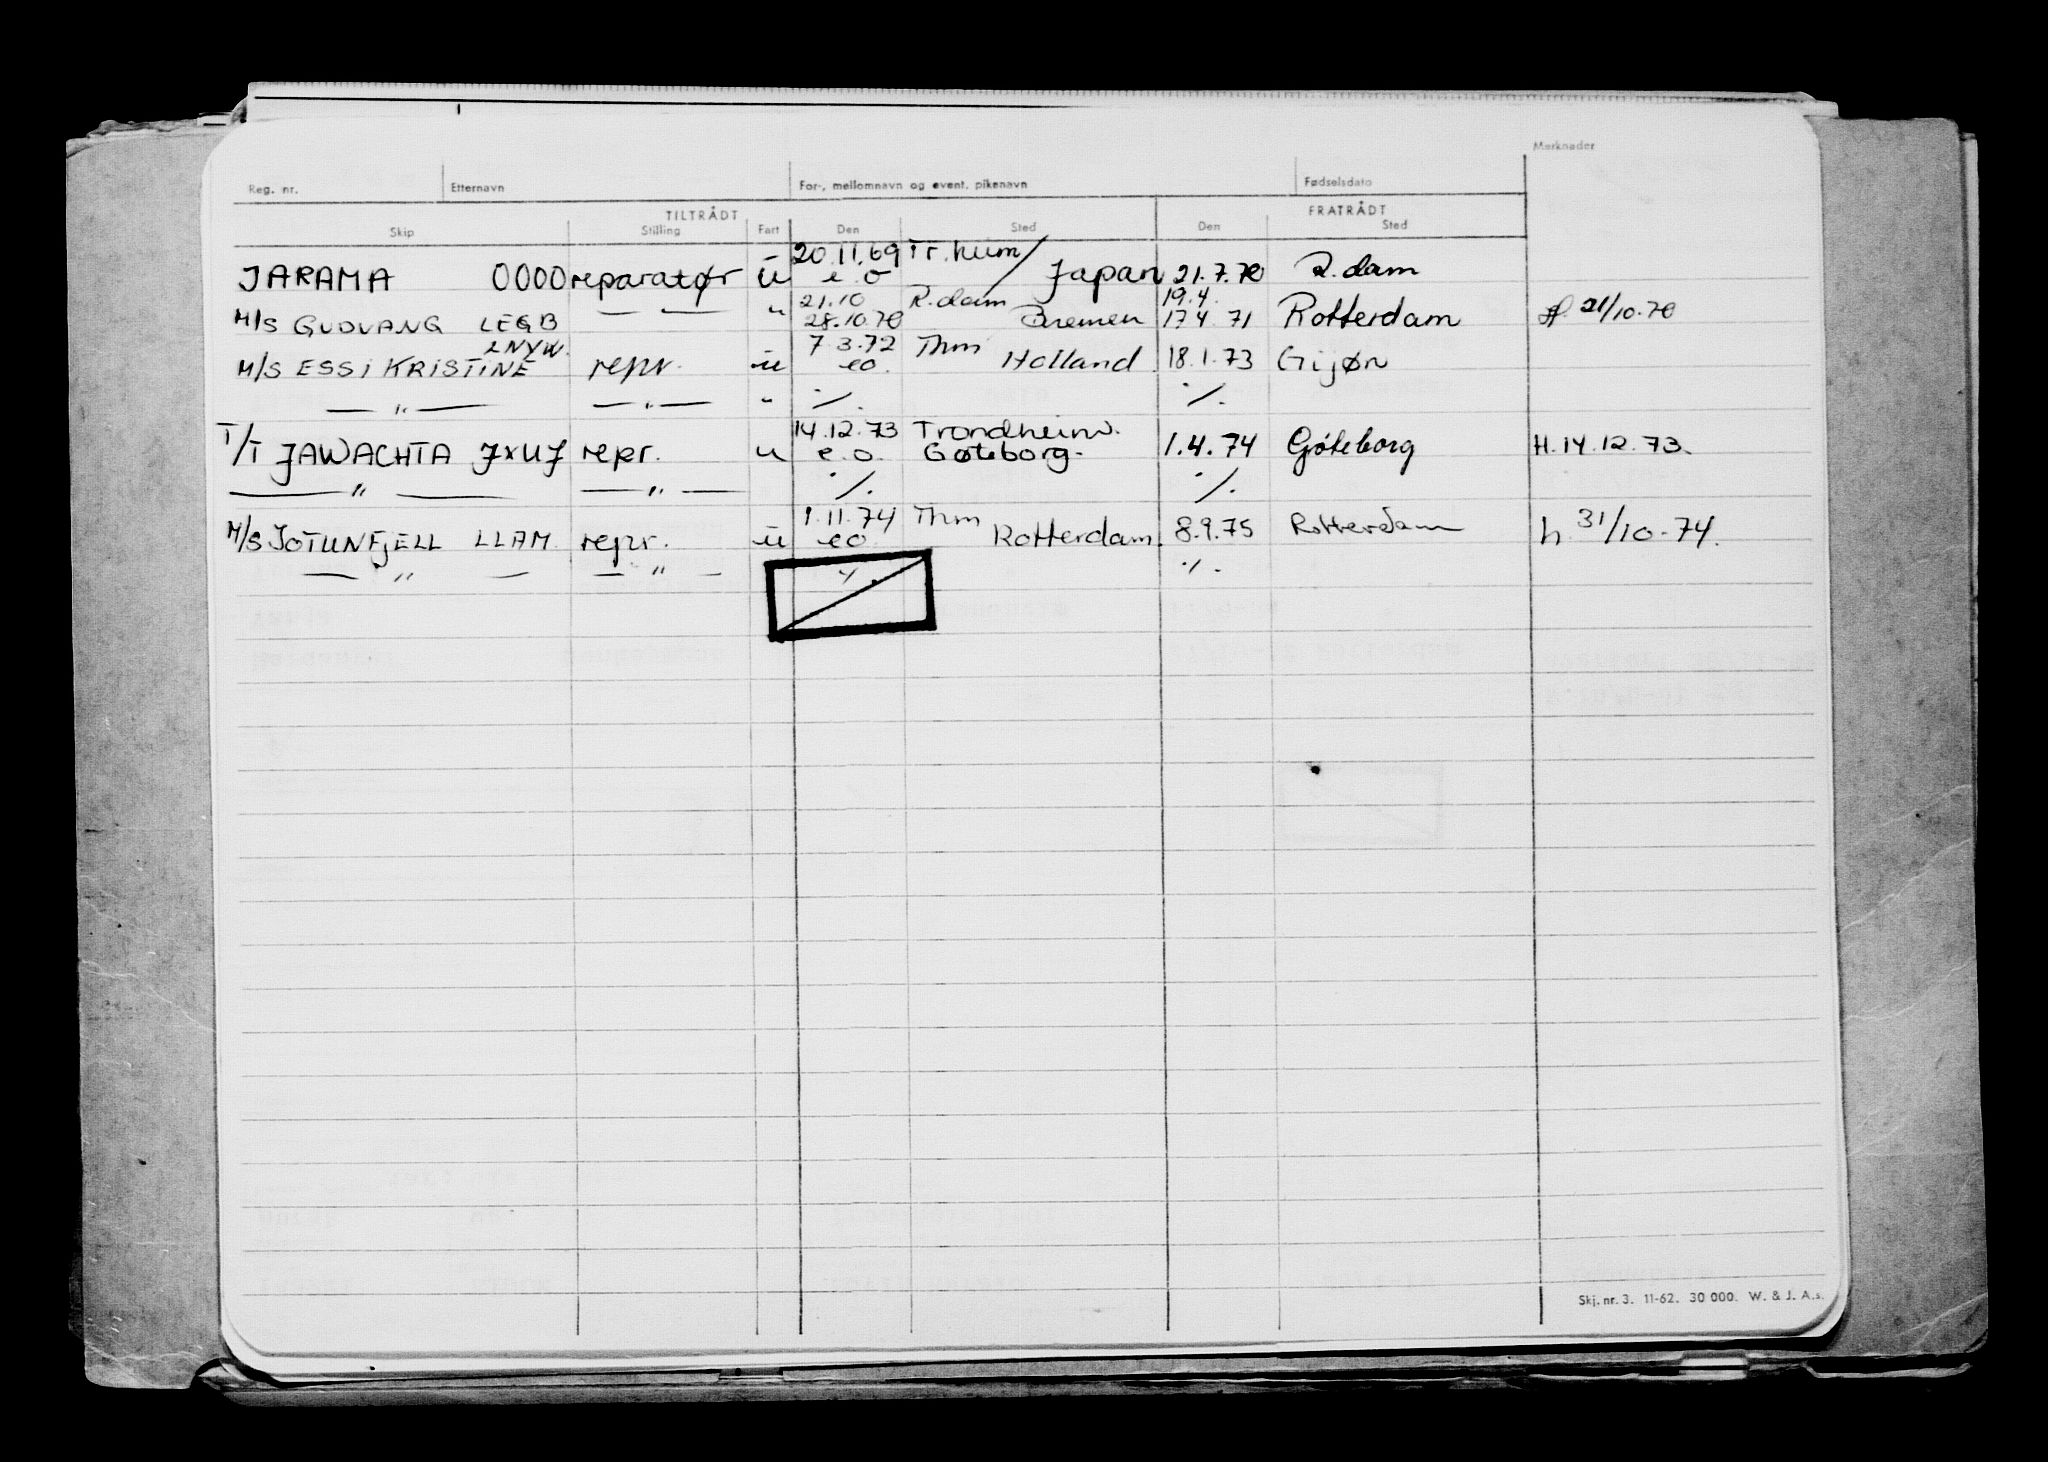 Merknader
Reg. nr. Etternavn For-, mellomnavn og event. pikenavn Fødselsdato
TILTRÅDT FRATRÅDT
Skip Stilling Fart Den Sted Den Sted
20.11.69 Tr.heim/
JARAMA 0000 reparatør u e.o Japan 21.7.70 R.dam
21.10 R.dam 19.4.
M/S GUDVANG LEGB — — " 28.10.70 Bremen 17.4.71 Rotterdam 21/10.70
LNYW. 7.3.72 Thm
M/S ESSI KRISTINE repr. u eo. Holland 18.1.73 Gijøn
— " — — " — " ·/. ·/.
14.12.73 Trondheim.
T/T JAWACHTA JXUJ repr. u e.o. Gøteborg. 1.4.74 Gøteborg H.14.12.73.
— " — — " — ·/. ·/.
1.11.74 Thm
M/S JOTUNFJELL LLAM repr. u eo Rotterdam. 8.9.75 Rotterdam h. 31/10-74.
— " — — " — ·/. ·/.
Skj. nr. 3. 11-62. 30 000. W. & J. A.s.